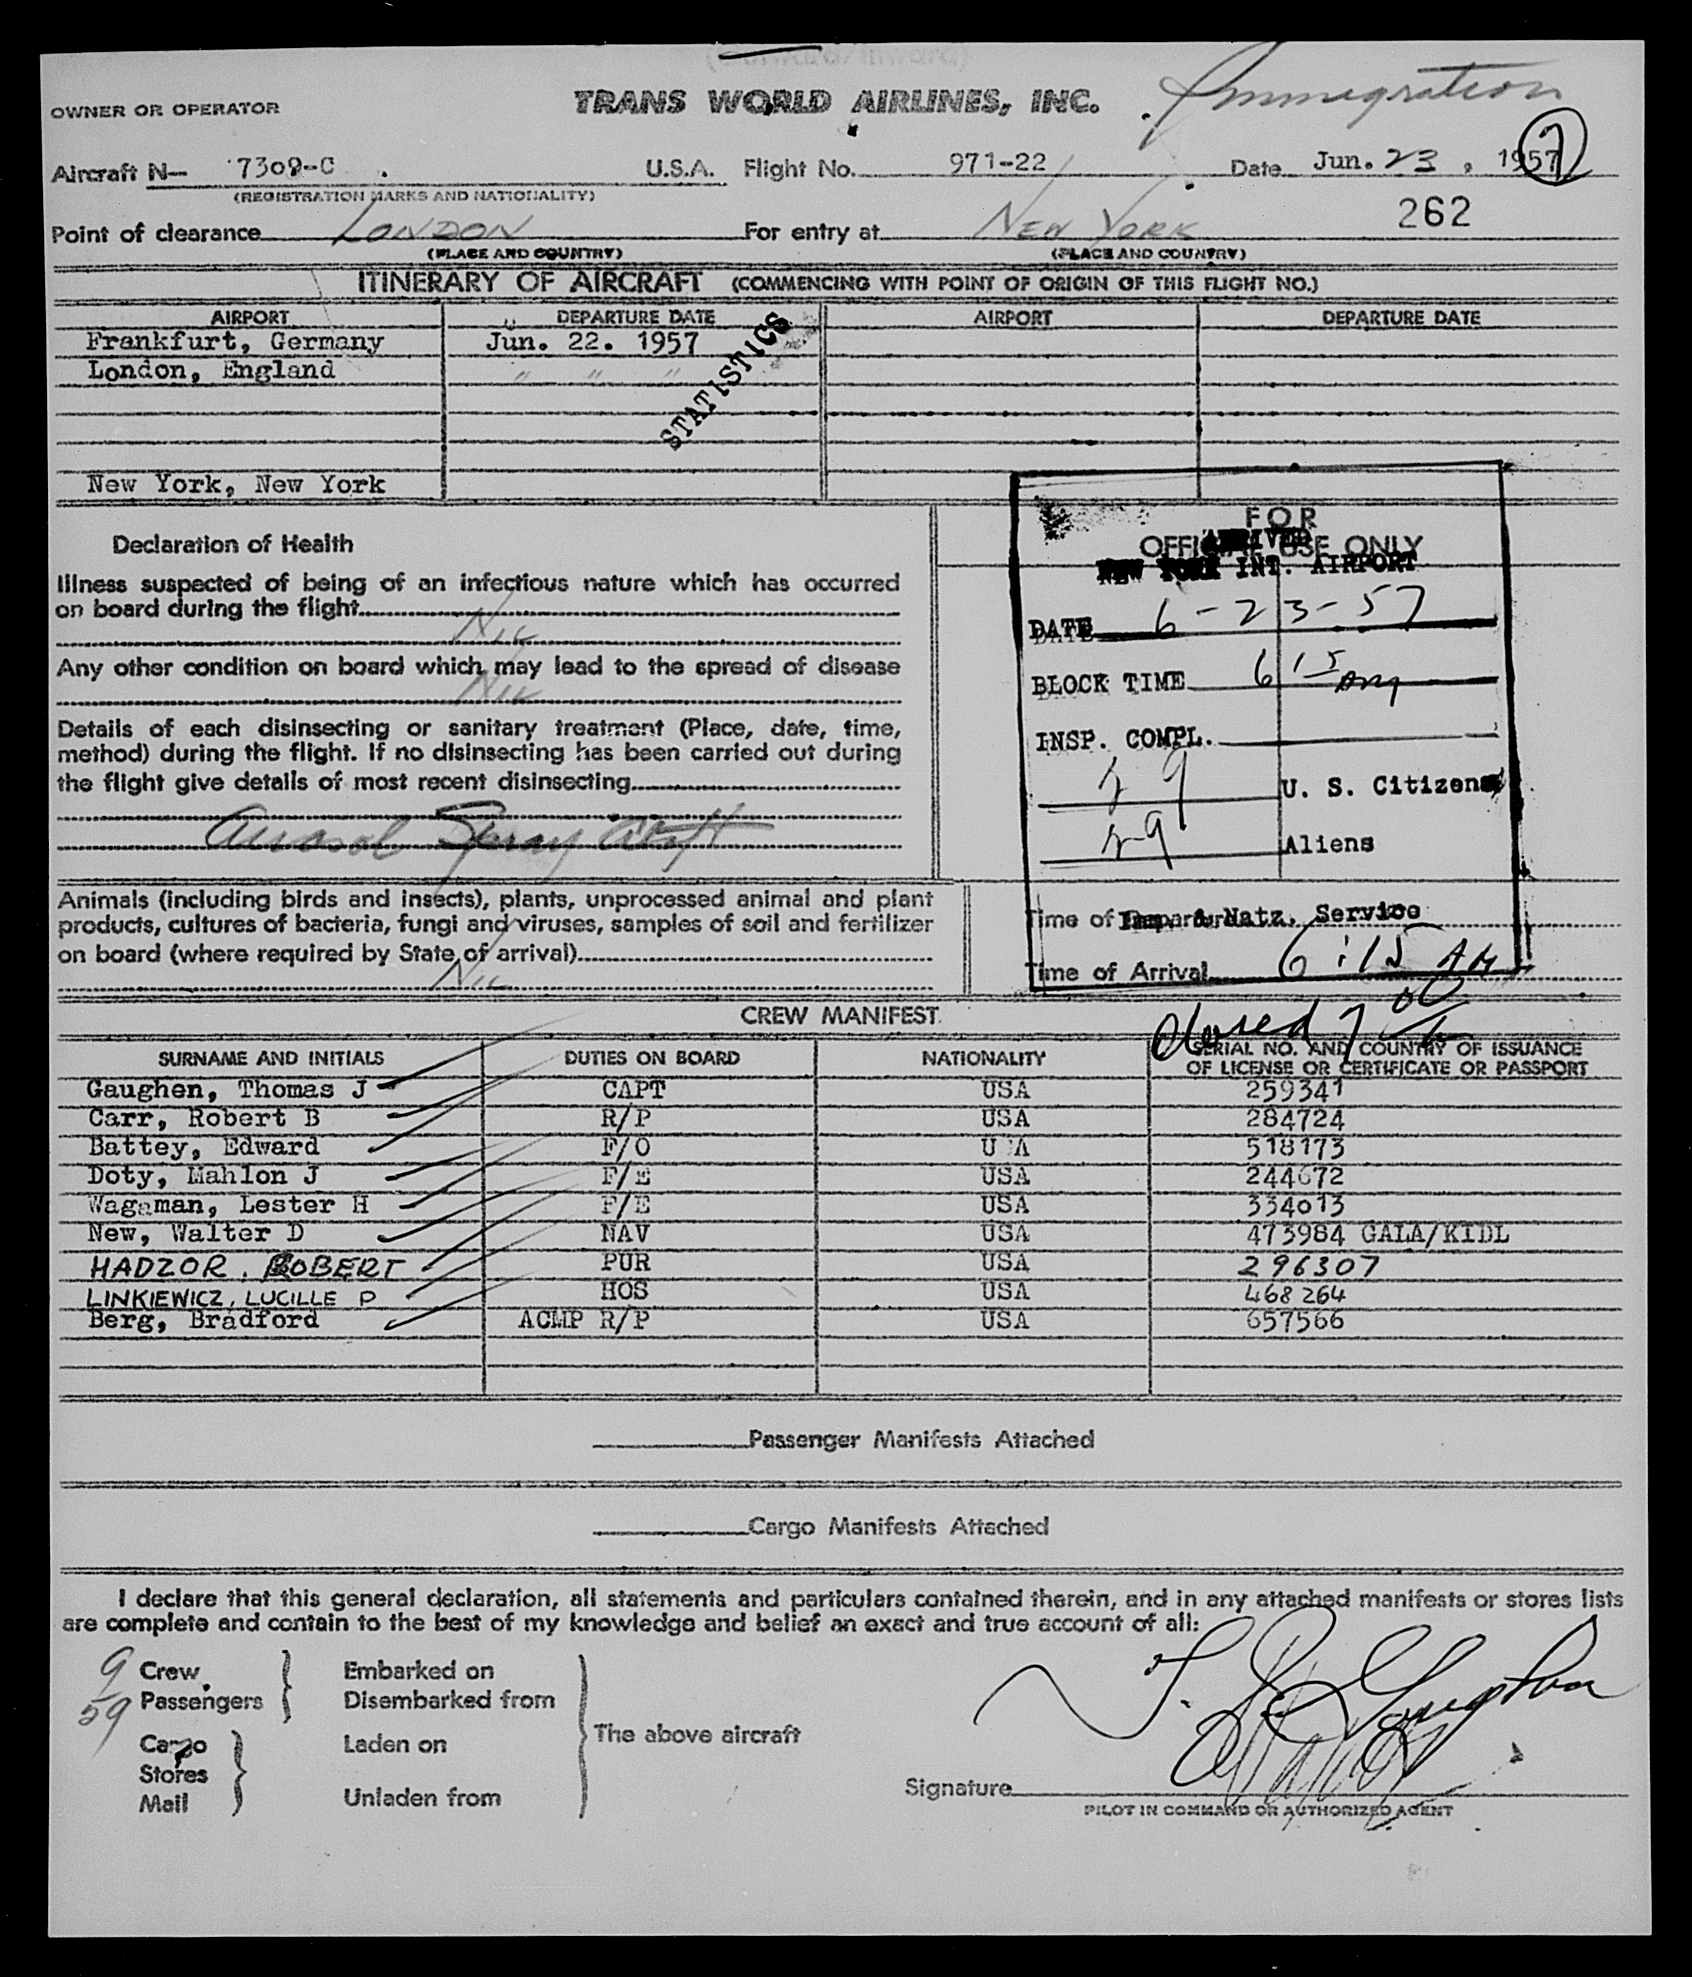 Immigration
OWNER OR OPERATOR TRANS WORLD AIRLINES, INC.
Aircraft N— 7309-C U.S.A. Flight No. 971-22 Date Jun. 23, 1957
(REGISTRATION MARKS AND NATIONALITY)
262
Point of clearance LONDON For entry at NEW YORK
(PLACE AND COUNTRY) (PLACE AND COUNTRY)
ITINERARY OF AIRCRAFT (COMMENCING WITH POINT OF ORIGIN OF THIS FLIGHT NO.)
AIRPORT DEPARTURE DATE AIRPORT DEPARTURE DATE
Frankfurt, Germany Jun. 22. 1957
London, England " " "
STATISTICS
New York, New York
Declaration of Health
Illness suspected of being of an infectious nature which has occurred
on board during the flight
NIL
Any other condition on board which may lead to the spread of disease
NIL
Details of each disinsecting or sanitary treatment (Place, date, time,
method) during the flight. If no disinsecting has been carried out during
the flight give details of most recent disinsecting
Spray
FOR
OFFICIAL USE ONLY
ARRIVED
NEW YORK INT. AIRPORT
DATE 6-23-57
BLOCK TIME 6 15 AM
INSP. COMPL.
U. S. Citizens
Aliens
Imm. & Natz. Service
Time of Departure
Time of Arrival 6:15 AM
Animals (including birds and insects), plants, unprocessed animal and plant
products, cultures of bacteria, fungi and viruses, samples of soil and fertilizer
on board (where required by State of arrival)
NIL
Closed 7 00
CREW MANIFEST
SURNAME AND INITIALS DUTIES ON BOARD NATIONALITY SERIAL NO. AND COUNTRY OF ISSUANCE
OF LICENSE OR CERTIFICATE OR PASSPORT
Gaughen, Thomas J CAPT USA 259341
Carr, Robert B R/P USA 284724
Battey, Edward F/O U A 518173
Doty, Mahlon J F/E USA 244672
Wagaman, Lester H F/E USA 334013
New, Walter D NAV USA 473984 GALA/KIDL
HADZOR, ROBERT PUR USA 296307
LINKIEWICZ, LUCILLE P HOS USA 468264
Berg, Bradford ACMP R/P USA 657566
Passenger Manifests Attached
Cargo Manifests Attached
I declare that this general declaration, all statements and particulars contained therein, and in any attached manifests or stores lists
are complete and contain to the best of my knowledge and belief an exact and true account of all:
9 Crew Embarked on
59 Passengers Disembarked from
The above aircraft
Cargo Laden on
Stores
Mail Unladen from
Signature
PILOT IN COMMAND OR AUTHORIZED AGENT